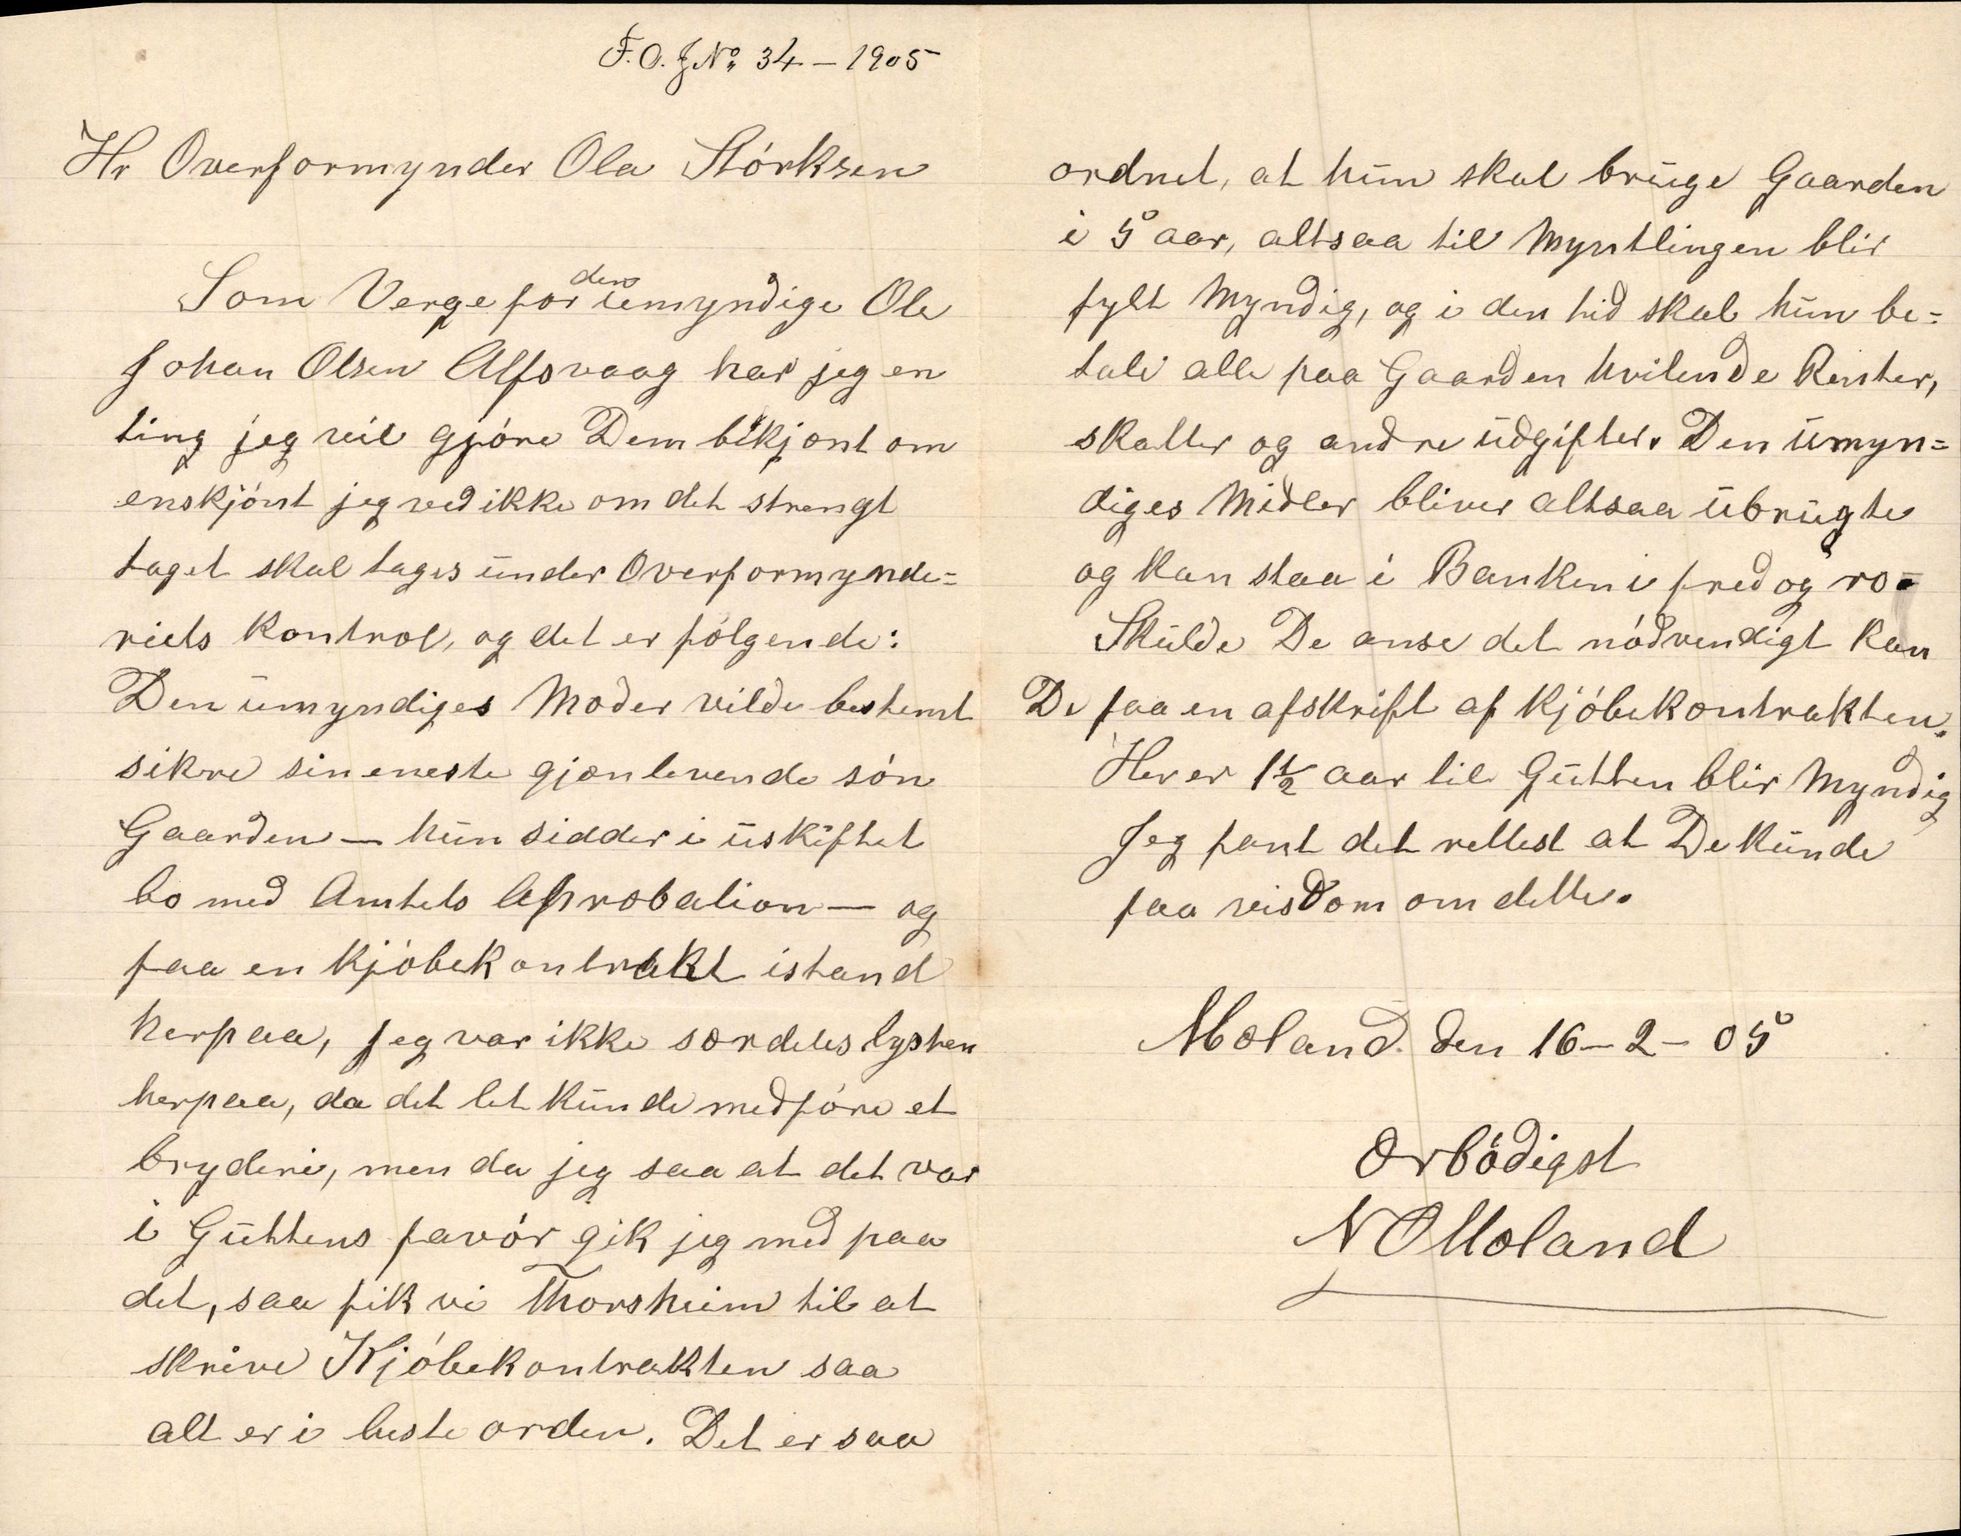 F.O.J No. 34 – 1905
Hr Overformynder Ola Störksen
Som Verge for den umyndige Ole
Johan Olsen Alfsvaag har jeg en
ting jeg vil gjöre Dem bekjent om
enskjönt jeg ved ikke om det strengt
taget skal tages under Overformynde=
riets Kontrol, og det er fölgende:
Den umyndiges Moder vilde bestemt
sikre sin eneste gjenlevende sön
Gaarden – hun sidder i uskiftet
bo med Amtets Approbation – og
faa en Kjöbekontrakt istand
herpaa, jeg var ikke særdeles lysten
herpaa, da det let kunde medföre et
bryderi, men da jeg saa at det var
i Guttens favör gik jeg med paa
det, saa fik vi Thorsheim til at
skrive Kjöbekontrakten saa
alt er i beste orden. Det er saa
ordnet, at hun skal bruge Gaarden
i 5 aar, altsaa til Myntlingen blir
fylt Myndig, og i den tid skal hun be=
tale alle paa Gaarden hvilende Renter,
skatter og andre udgifter. Den umyn=
diges Midler bliver altsaa ubrugte
og kan staa i Banken i fred og ro.
Skulde De anse det nödvendigt kan
De faa en afskrift af Kjöbekontrakten.
Her er 1½ aar til Gutten blir Myndig
Jeg fant det rettest at De kunde
faa visdom om dette.
Moland den 16 – 2 – 05
Ærbödigst
N O Moland